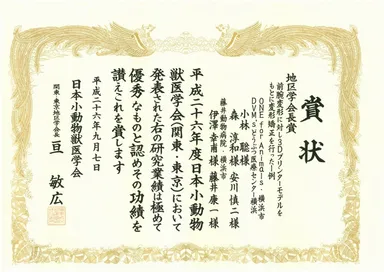 賞状
地区学会長賞
前腕変形に対し3Dプリンターモデルを
もとに変形矯正を行った1例
ONE for Animals・横浜市
DVMsどうぶつ医療センター横浜
小林 聡様
森 淳和様 安川慎二様
藤井動物病院・横浜市
伊澤幸甫様 藤井康一様
平成二十六年度日本小動物
獣医学会(関東・東京)において
発表された右の研究業績は極めて
優秀なものと認めその功績を
讃えこれを賞します
平成二十六年九月七日
日本小動物獣医学会
関東・東京地区学会長
亘 敏広